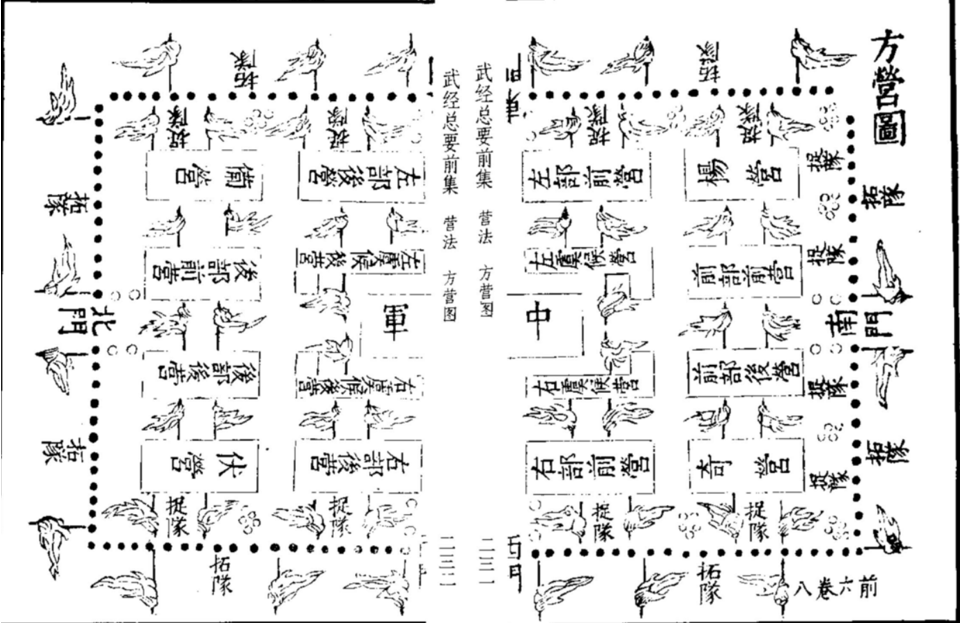 方營圖
拓隊
拓隊
南門
捉隊
捉隊
捉隊
捉隊
拓隊
捉隊
捉隊
楊營
前部前營
前部後營
奇營
左部前營
左虞候營
中
右虞候營
右部前營
捉隊
捉隊
拓隊
前六卷八
武经总要前集 营法 方营图 二三一
武经总要前集 营法 方营图 二三二
拓隊
捉隊
捉隊
左部後營
左虞候後營
軍
右虞候後營
右部後營
備營
後部前營
後部後營
伏營
捉隊
捉隊
拓隊
拓隊
北門
拓隊